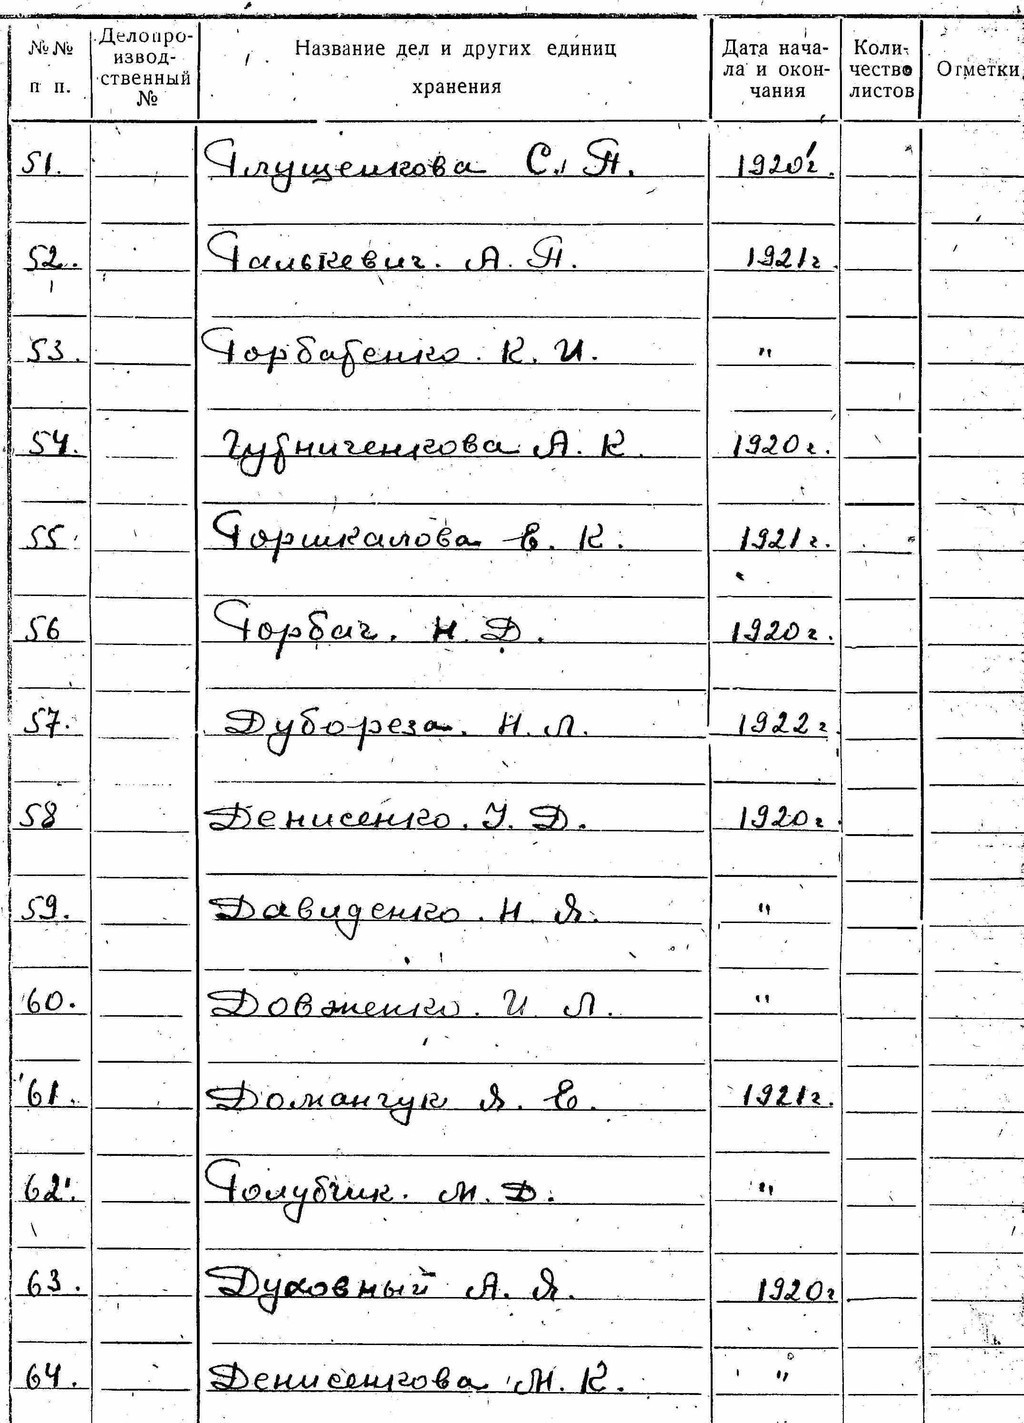 №№ п п. Делопроизводственный № Название дел и других единиц хранения Дата начала и окончания Количество листов Отметки
51. Глущенкова С. П. 1920 г.
52. Галькевич. А. П. 1921 г.
53. Горбатенко. К. И. "
54. Губниченкова А. К. 1920 г.
55. Горшкалова Е. К. 1921 г.
56 Горбач. Н. Д. 1920 г.
57. Дубореза. Н. Л. 1922 г
58 Денисенко. У. Д. 1920 г
59. Давиденко. Н. Я. "
60. Довженко. И Л. "
61. Доманчук Я. Е. 1921 г.
62. Голубчик. М. Д. "
63. Духовный А. Я. 1920 г
64. Денисенкова М. К. "